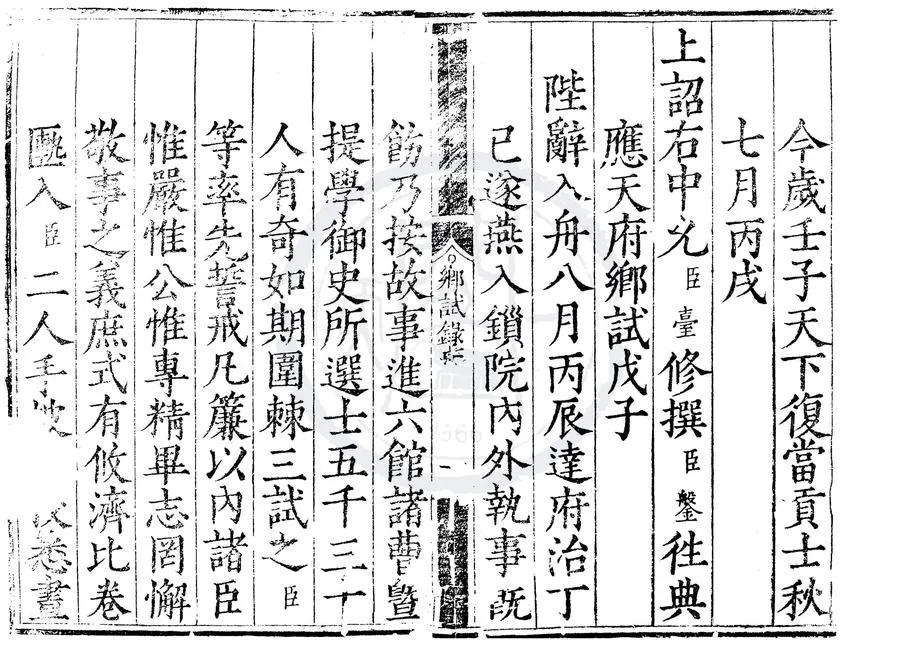 今歲壬子天下復當貢士秋
七月丙戌
上詔右中允臣臺修撰臣鑿徃典
應天府鄉試戊子
陛辭入舟八月丙辰達府治丁
已遂燕入鎖院內外執事旣
鄉試錄序
一
飭乃按故事進六館諸曹曁
提學御史所選士五千三十
人有奇如期圍棘三試之臣
等率先誓戒凡簾以內諸臣
惟嚴惟公惟專精畢志罔懈
敬事之義庶式有攸濟比卷
入臣二人手 悉晝